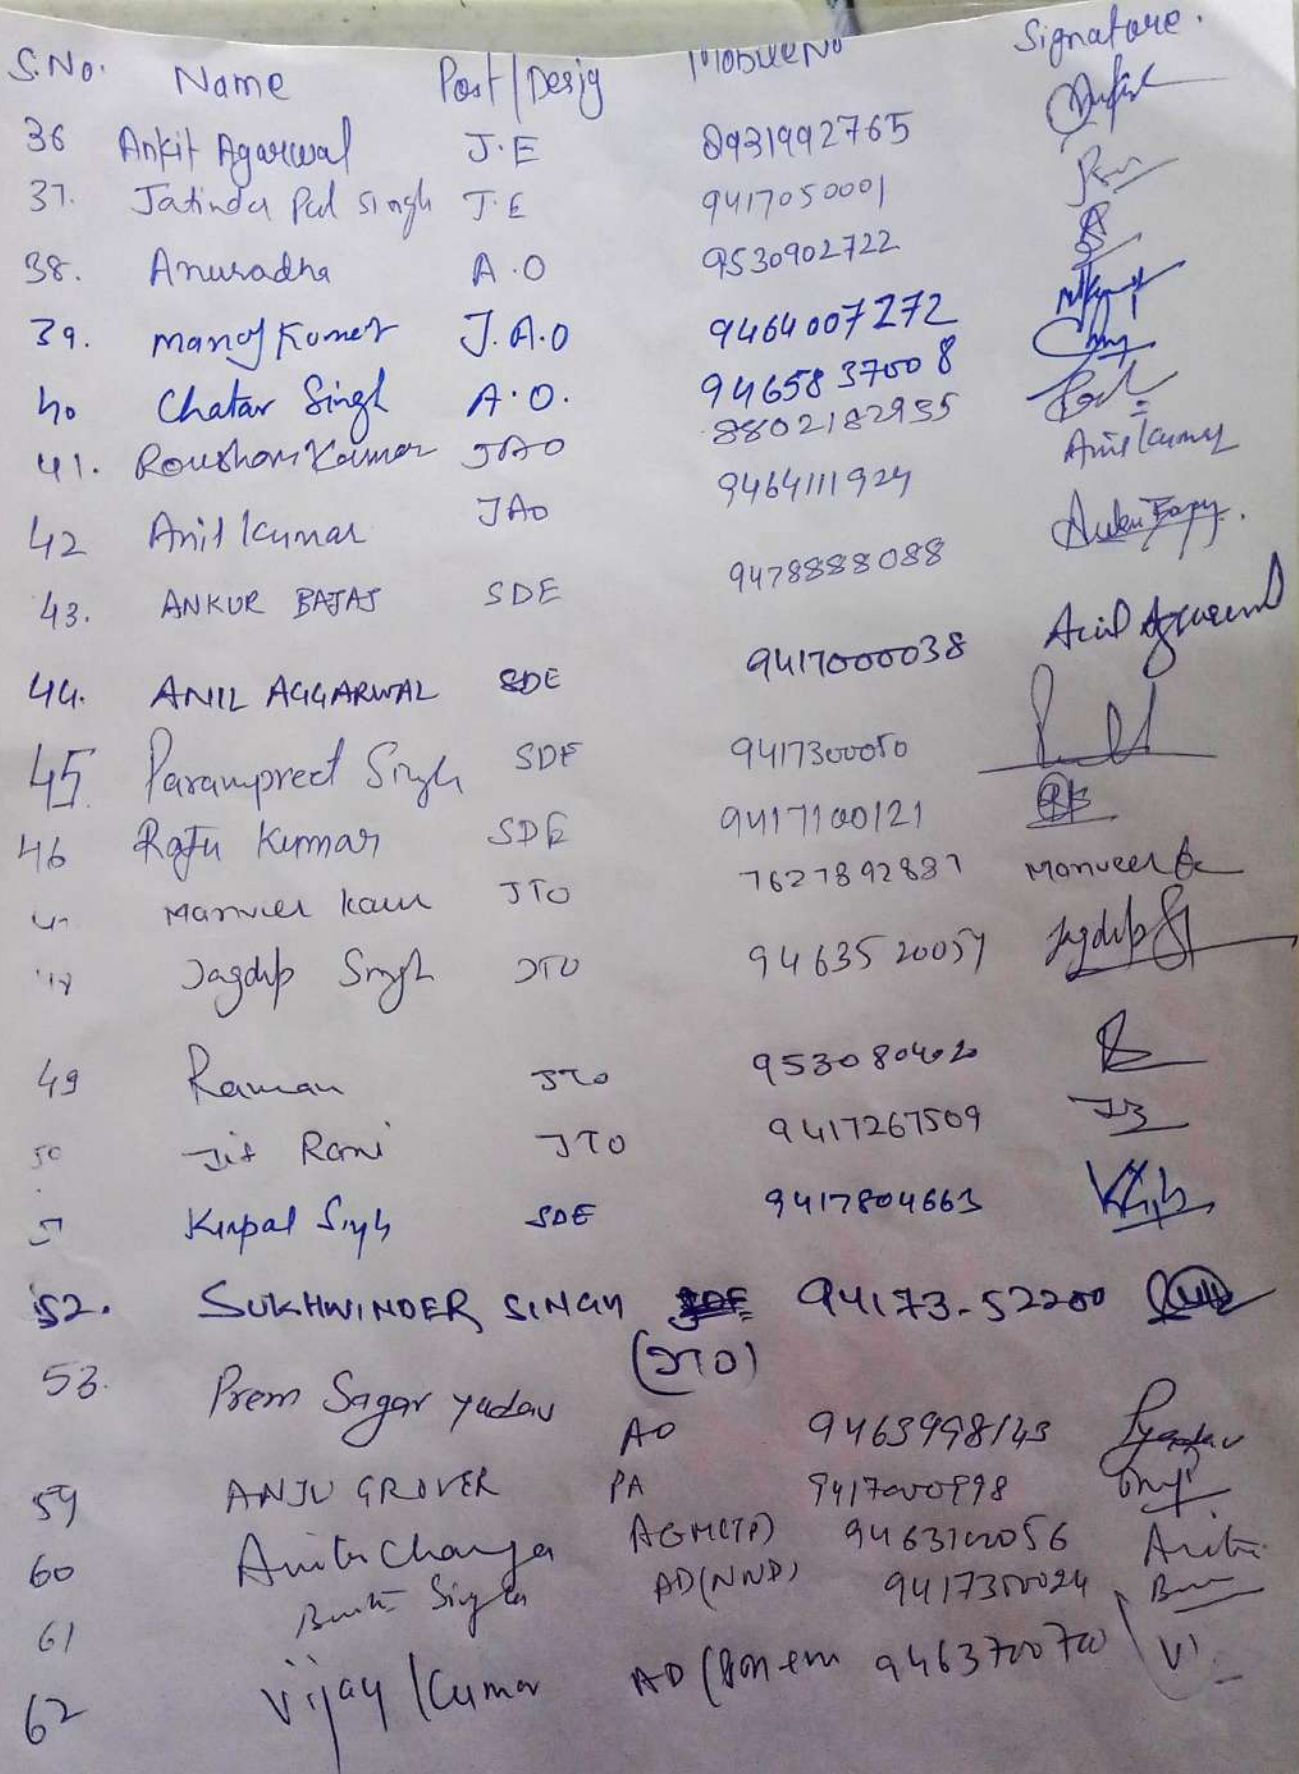 S.No. Name Post/Desig Mobile No Signature.
36 Ankit Agarwal J.E 8931992765
37. Jatinder Pal Singh J.E 9417050001
38. Anuradha A.O 9530902722
39. Manoj Kumar J.A.O 9464007272
40 Chatar Singh A.O. 9465837008
41. Roushan Kumar JAO 8802182935
42 Anil Kumar JAO 9464111924 Anil Kumar
43. ANKUR BAJAJ SDE 9478888088
44. ANIL AGGARWAL SDE 9417000038 Anil Aggarwal
45 Parampreet Singh SDE 9417300050
46 Raju Kumar SDE 9417100121
Manveer kaur JTO 7627892837 Manveer
48 Jagdip Singh JTO 9463520057 Jagdip
49 Raman JTO
50 Jit Rani JTO 9417267509
51 Kirpal Singh SDE 9417804663
52. SUKHWINDER SINGH 94173-52200
(JTO)
53. Prem Sagar Yadav AO 9463998143
59 ANJU GROVER PA 9417000998
60 Anita AGM(TP) 9463100056 Anita
61 AD(NWP) 9417300024
62 Vijay Kumar AD 9463700700